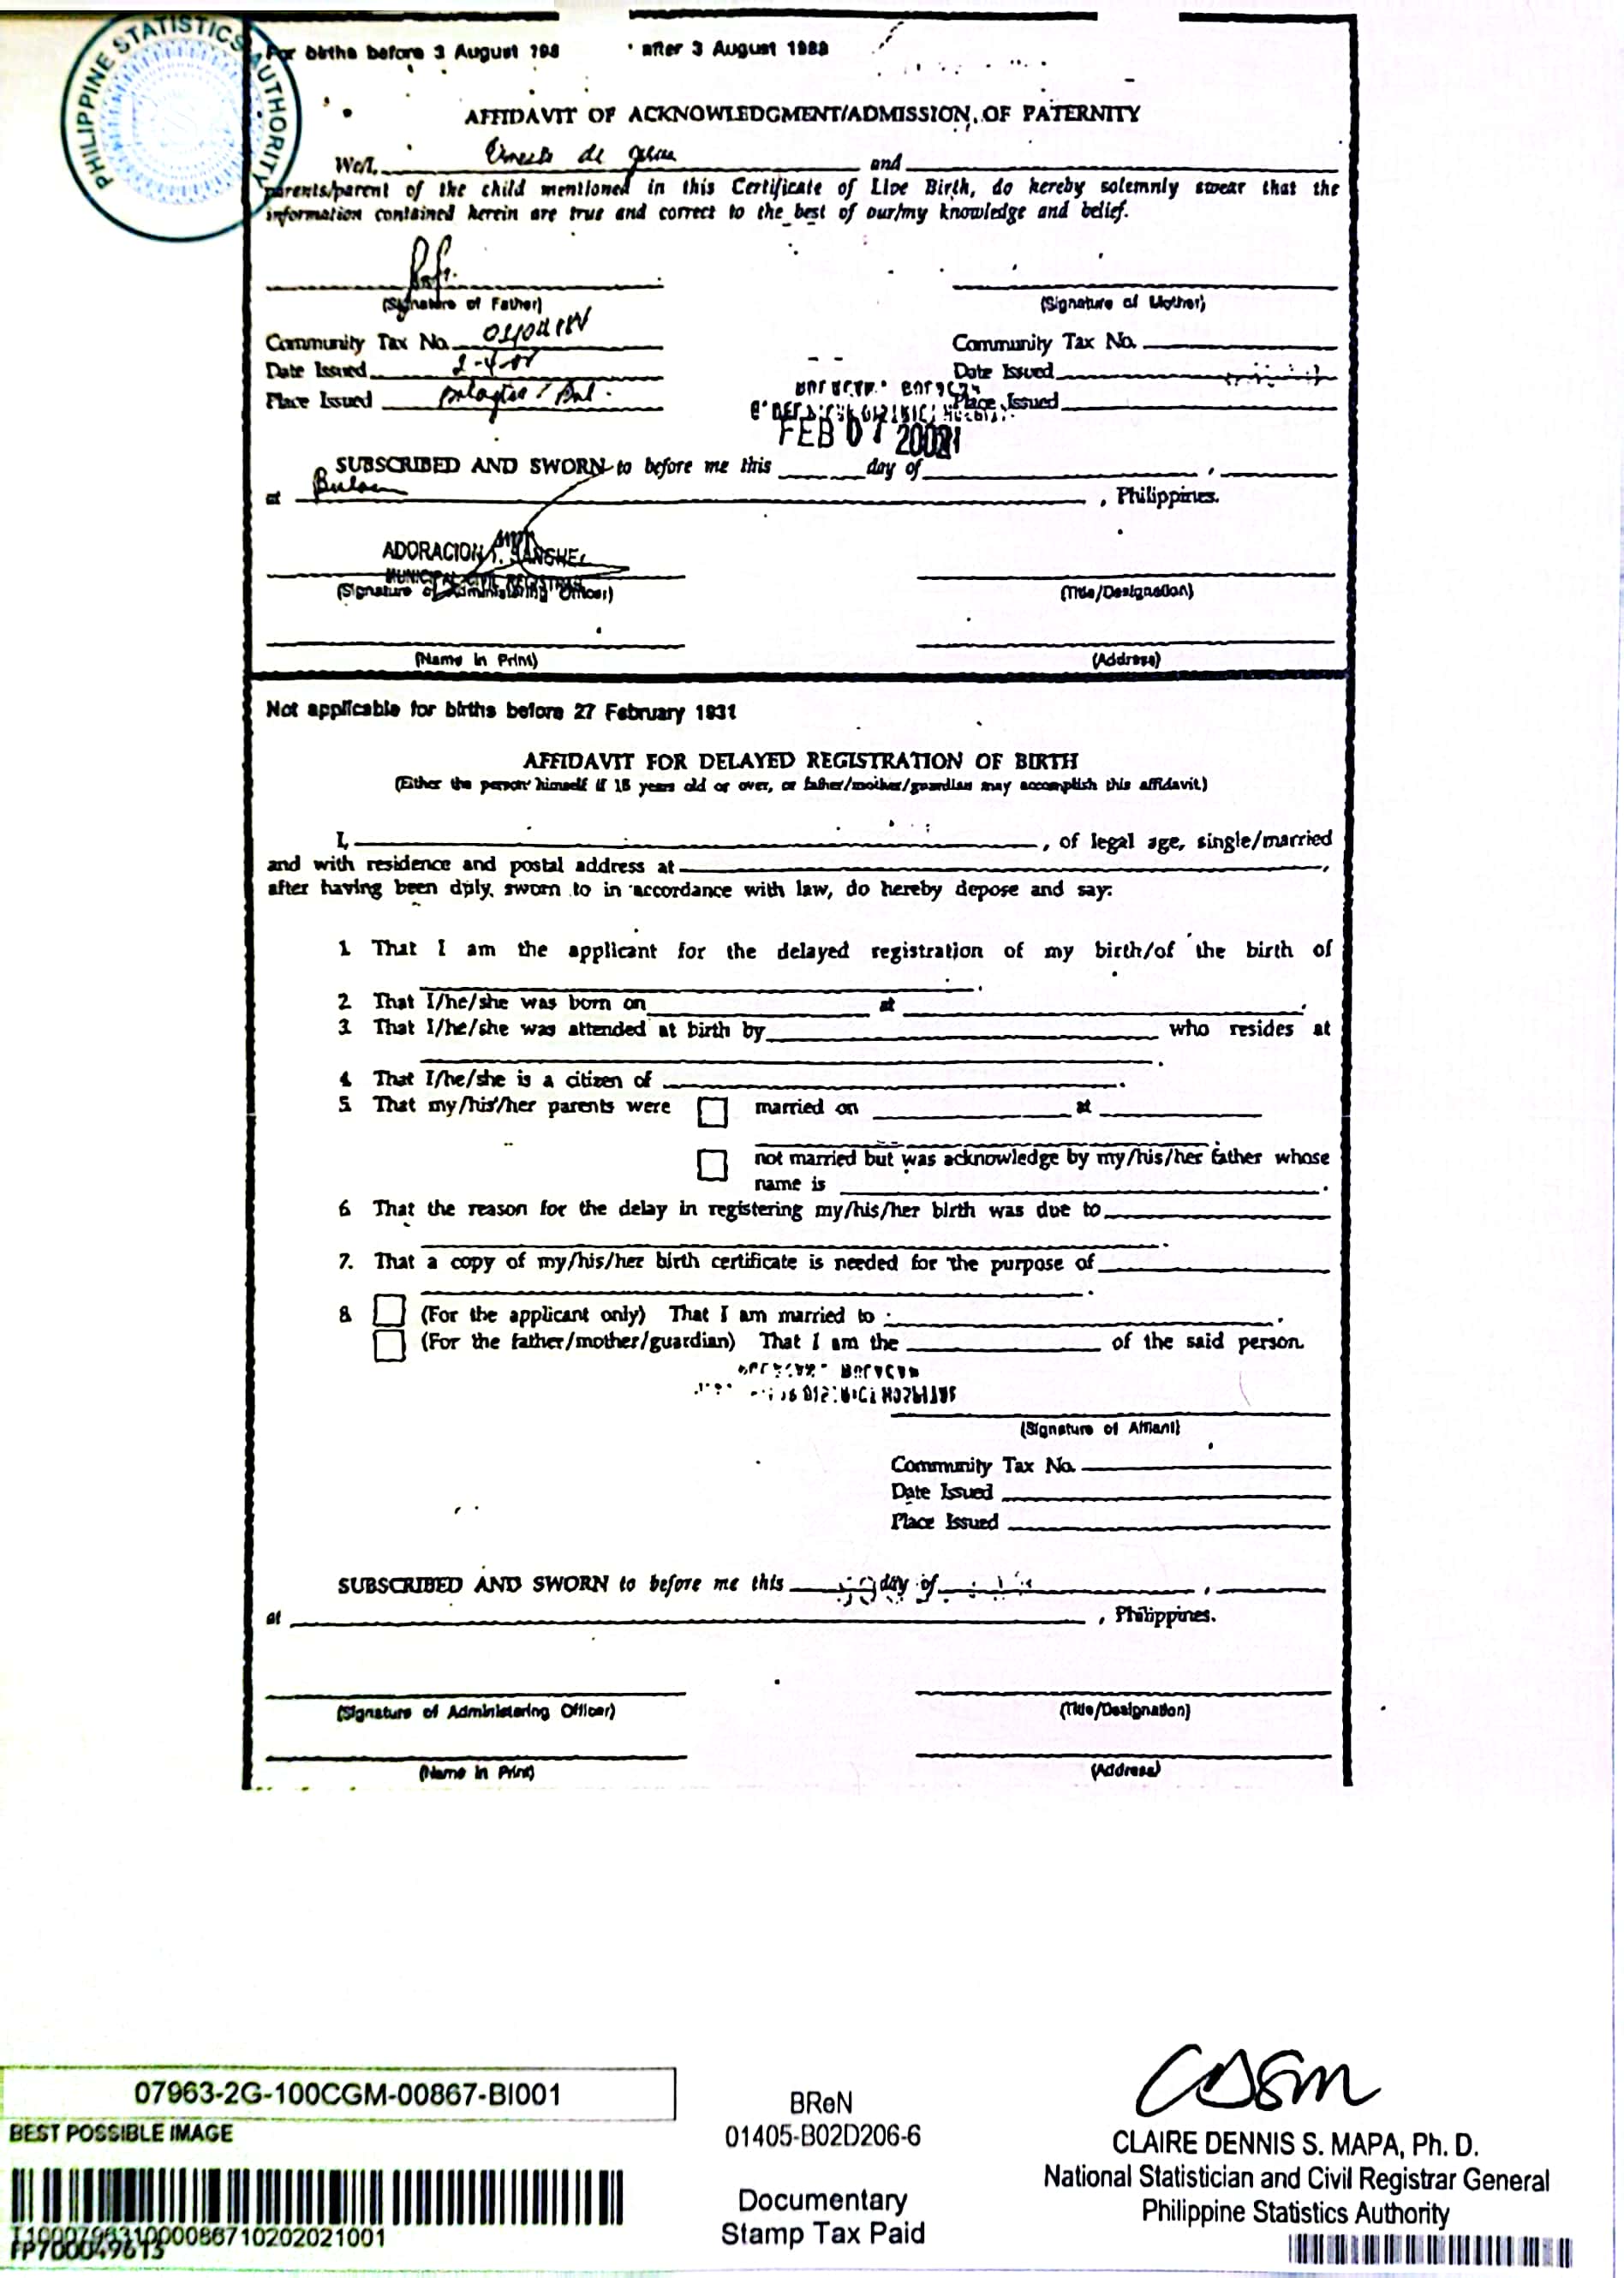 PHILIPPINE STATISTICS AUTHORITY
For births before 3 August 198 after 3 August 1988
AFFIDAVIT OF ACKNOWLEDGMENT/ADMISSION OF PATERNITY
We/I, de and
parents/parent of the child mentioned in this Certificate of Live Birth, do hereby solemnly swear that the
information contained herein are true and correct to the best of our/my knowledge and belief.
(Signature of Father) (Signature of Mother)
Community Tax No. Community Tax No.
Date Issued Date Issued
Place Issued Place Issued
FEB 07
SUBSCRIBED AND SWORN to before me this day of ,
at , Philippines.
ADORACION
MUNICIPAL CIVIL REGISTRAR
(Signature of Administering Officer) (Title/Designation)
(Name in Print) (Address)
Not applicable for births before 27 February 1931
AFFIDAVIT FOR DELAYED REGISTRATION OF BIRTH
(Either the person himself if 18 years old or over, or father/mother/guardian may accomplish this affidavit.)
I, , of legal age, single/married
and with residence and postal address at ,
after having been duly sworn to in accordance with law, do hereby depose and say:
1. That I am the applicant for the delayed registration of my birth/of the birth of
.
2. That I/he/she was born on at .
3. That I/he/she was attended at birth by who resides at
.
4. That I/he/she is a citizen of .
5. That my/his/her parents were married on at
.
not married but was acknowledge by my/his/her father whose
name is .
6. That the reason for the delay in registering my/his/her birth was due to
.
7. That a copy of my/his/her birth certificate is needed for the purpose of
.
8. (For the applicant only) That I am married to .
(For the father/mother/guardian) That I am the of the said person.
(Signature of Affiant)
Community Tax No.
Date Issued
Place Issued
SUBSCRIBED AND SWORN to before me this day of ,
at , Philippines.
(Signature of Administering Officer) (Title/Designation)
(Name in Print) (Address)
07963-2G-100CGM-00867-BI001
BEST POSSIBLE IMAGE
BReN
01405-B02D206-6
Documentary
Stamp Tax Paid
CLAIRE DENNIS S. MAPA, Ph. D.
National Statistician and Civil Registrar General
Philippine Statistics Authority